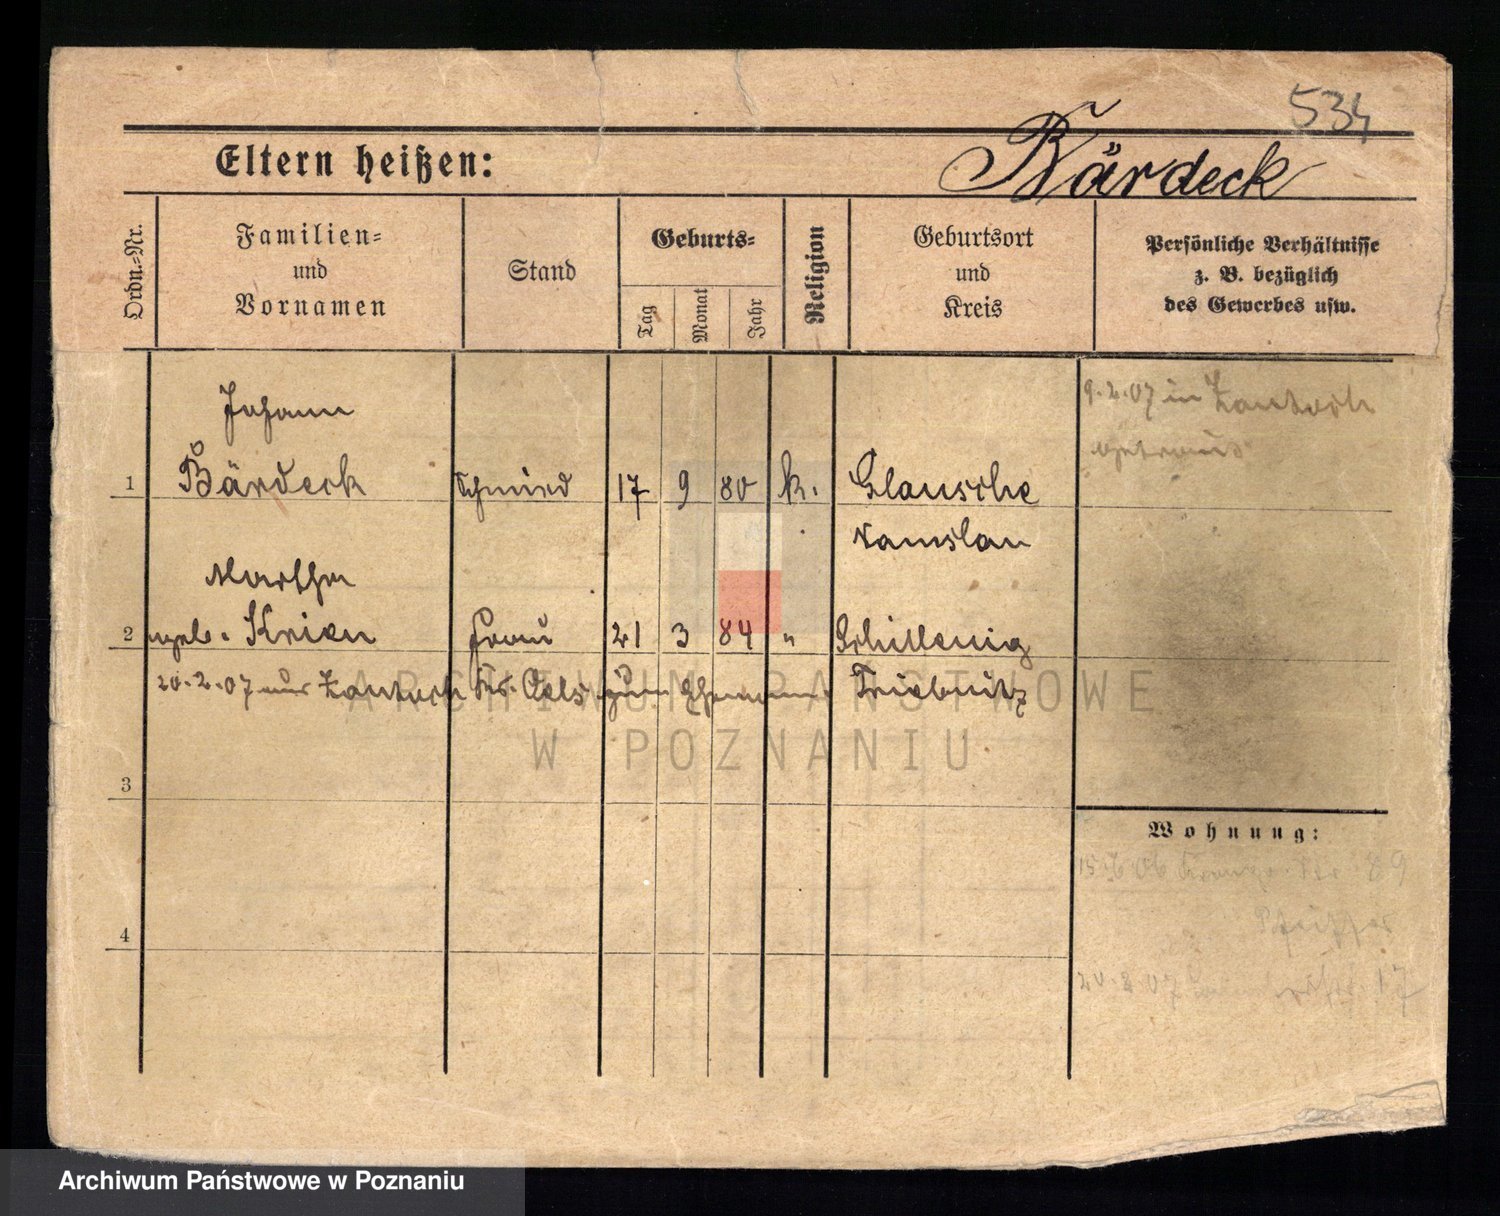 534
Eltern heißen: Bärdeck
Ordn.=Nr.
Familien=
und
Vornamen
Stand
Geburts=
Tag
Monat
Jahr
Religion
Geburtsort
und
Kreis
Persönliche Verhältnisse
z. B. bezüglich
des Gewerbes usw.
Johann
1 Bärdeck Schmied 17 9 80 k. Glausche
Namslau
9.2.07 in Zantoch
getraut
Martha
2 geb. Krien Frau 21 3 84 "
20.2.07 aus Zantoch Kr. Oels zum Ehemann Trebnitz
3
4
Wohnung:
15.6.06 89
Pfeiffer
20.2.07 17
ARCHIWUM PAŃSTWOWE
W POZNANIU
Archiwum Państwowe w Poznaniu